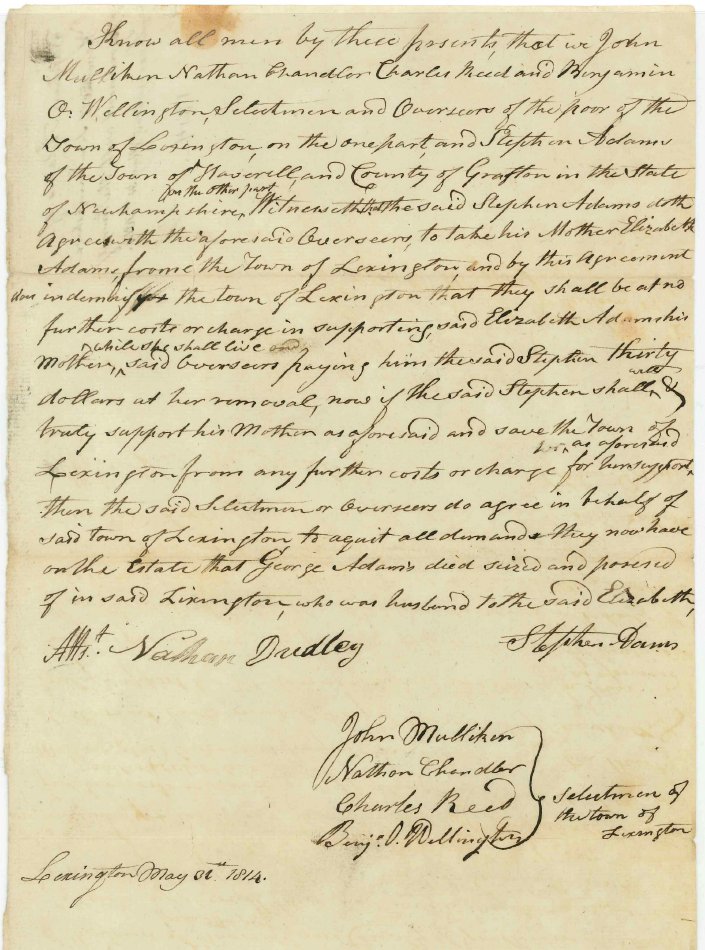 Know all men by these presents, that we John
Mulliken Nathan Chandler Charles Reed and Benjamin
O. Wellington, Selectmen and Overseers of the poor of the
Town of Lexington, on the one part, and Stephen Adams
of the Town of Haverell, and County of Grafton in the State
on the other part
of Newhampshire, Witnesseth that the said Stephen Adams doth
Agree with the aforesaid Overseers, to take his Mother Elizabeth
Adams, frome the Town of Lexington, and by this Agreement
does indemnify the town of Lexington that they shall be at no
further costs or charge in supporting, said Elizabeth Adams his
while she shall live
Mother, said Overseers paying him the said Stephen thirty
well
dollars at her removal, now if the said Stephen shall &
truly support his Mother as aforesaid and save the Town of
as aforesaid
Lexington from any further costs or charge for her support,
then the said Selectmen or Overseers do agree in behalf of
said town of Lexington to aquit all demands they now have
on the Estate that George Adams died seized and posesed
of in said Lexington, who was husband to the said Elizabeth,
Attst. Nathan Dudley Stephen Adams
John Mulliken
Nathan Chandler
Charles Reed
Benja. O. Wellington
selectmen of
the town of
Lexington
Lexington May 1814.